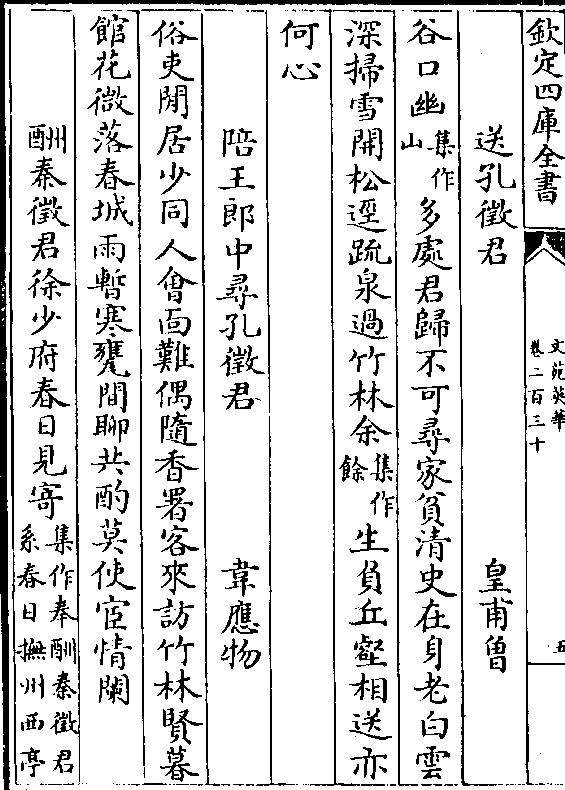 欽定四庫全書
文苑英華
卷二百三十
五
送孔徵君
皇甫曽
谷口幽集作山多處君歸不可尋家貧清史在身老白雲
深掃雪開松逕疏泉過竹林余集作餘生負丘壑相送亦
何心
陪王郎中尋孔徵君
韋應物
俗吏閒居少同人會面難偶隨香署客來訪竹林賢暮
館花微落春城雨暫寒甕間聊共酌莫使宦情闌
酬秦徵君徐少府春日見寄集作奉酬秦徵君系春日撫州西亭